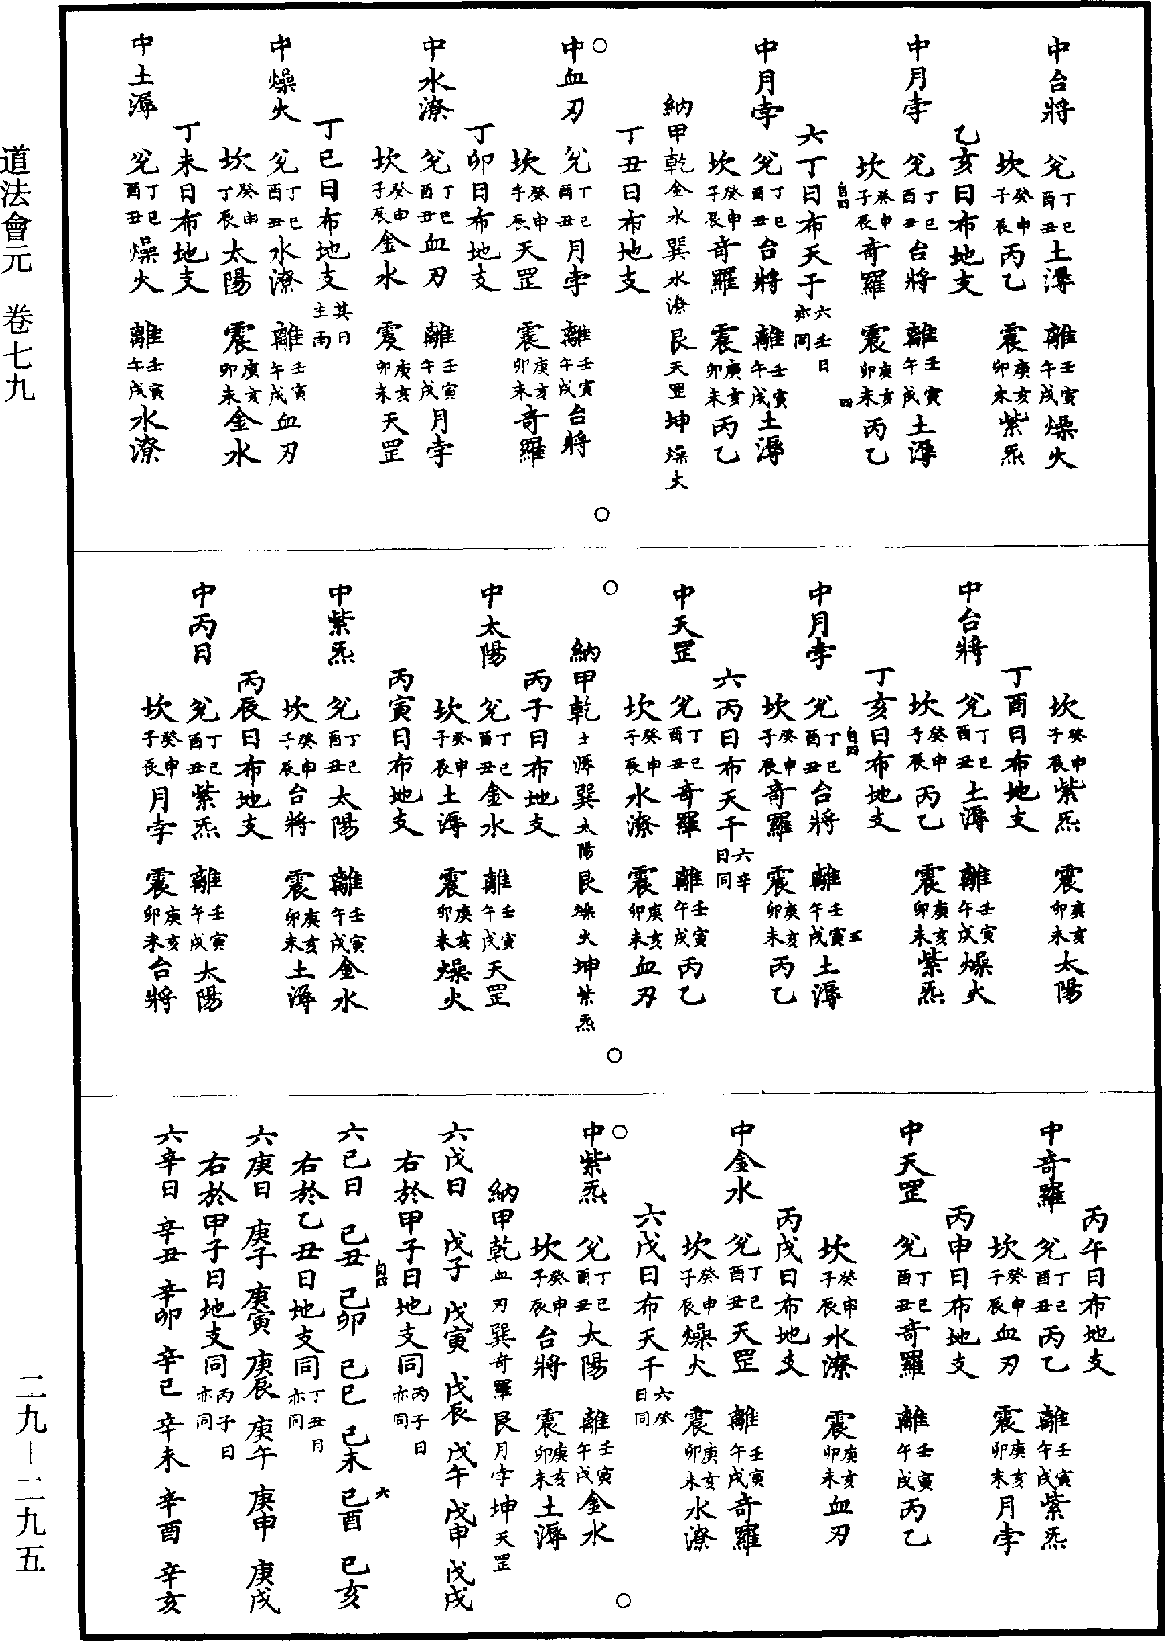 中台將　兌丁巳酉丑土潯　離壬寅午戌燥火
坎癸申子辰丙乙　震庚亥卯未紫炁
乙亥日布地支
中月孛　兌丁巳酉丑台將　離壬寅午戌土潯
坎癸申子辰奇羅　震庚亥卯未丙乙
六丁日布天干六壬日亦同
中月孛　兌丁巳酉丑台將　離壬寅午戌土潯
坎癸申子辰奇羅　震庚亥卯未丙乙
納甲乾金水巽水潦艮天罡坤燥火
丁丑日布地支
○中血刃　兌丁巳酉丑月孛　離壬寅午戌台將○
坎癸申子辰天罡　震庚亥卯未奇羅
丁卯日布地支
中水潦　兌丁巳酉丑血刃　離壬寅午戌月孛
坎癸申子辰金水　震庚亥卯未天罡
丁巳日布地支其日主雨
中燥火　兌丁巳酉丑水潦　離壬寅午戌血刃
坎癸申丁辰太陽　震庚亥卯未金水
丁未日布地支
中土潯　兌丁巳酉丑燥火　離壬寅午戌水潦
坎癸申子辰紫炁　震庚亥卯未太陽
丁酉日布地支
中台將　兌丁巳酉丑土潯　離壬寅午戌燥火
坎癸申子辰丙乙　震庚亥卯未紫炁
丁亥日布地支
中月孛　兌丁巳酉丑台將　離壬寅午戌土潯
坎癸申子辰奇羅　震庚亥卯未丙乙
六丙日布天干六辛日同
中天罡　兌丁巳酉丑奇羅　離壬寅午戌丙乙
坎癸申子辰水潦　震庚亥卯未血刃
○納甲乾土潯巽太陽艮燥火坤紫炁○
丙子日布地支
中太陽　兌丁巳酉丑金水　離壬寅午戌天罡
坎癸申子辰土潯　震庚亥卯未燥火
丙寅日布地支
中紫炁　兌丁巳酉丑太陽　離壬寅午戌金水
坎癸申子辰台將　震庚亥卯未土潯
丙辰日布地支
中丙日　兌丁巳酉丑紫炁　離壬寅午戌太陽
坎癸申子辰月孛　震庚亥卯未台將
丙午日布地支
中奇羅　兌丁巳酉丑丙乙　離壬寅午戌紫炁
坎癸申子辰血刃　震庚亥卯未月孛
丙申日布地支
中天罡　兌丁巳酉丑奇羅　離壬寅午戌丙乙
坎癸申子辰水潦　震庚亥卯未血刃
丙戌日布地支
中金水　兌丁巳酉丑天罡　離壬寅午戌奇羅
坎癸申子辰燥火　震庚亥卯未水潦
六戊日布天干六癸日同
○中紫炁　兌丁巳酉丑太陽　離壬寅午戌金水○
坎癸申子辰台將　震庚亥卯未土潯
納甲乾血刃巽奇羅艮月孛坤天罡
六戊日　戊子　戊寅　戊辰　戊午　戊申　戊戌
右於甲子日地支同丙子日亦同
六己日　己丑　己卯　己巳　己未　己酉　己亥
右於乙丑日地支同丁丑日亦同
六庚日　庚子　庚寅　庚辰　庚午　庚申　庚戌
右於甲子日地支同丙子日亦同
六辛日　辛丑　辛卯　辛巳　辛未　辛酉　辛亥
道法會元　卷七九
二九－二九五